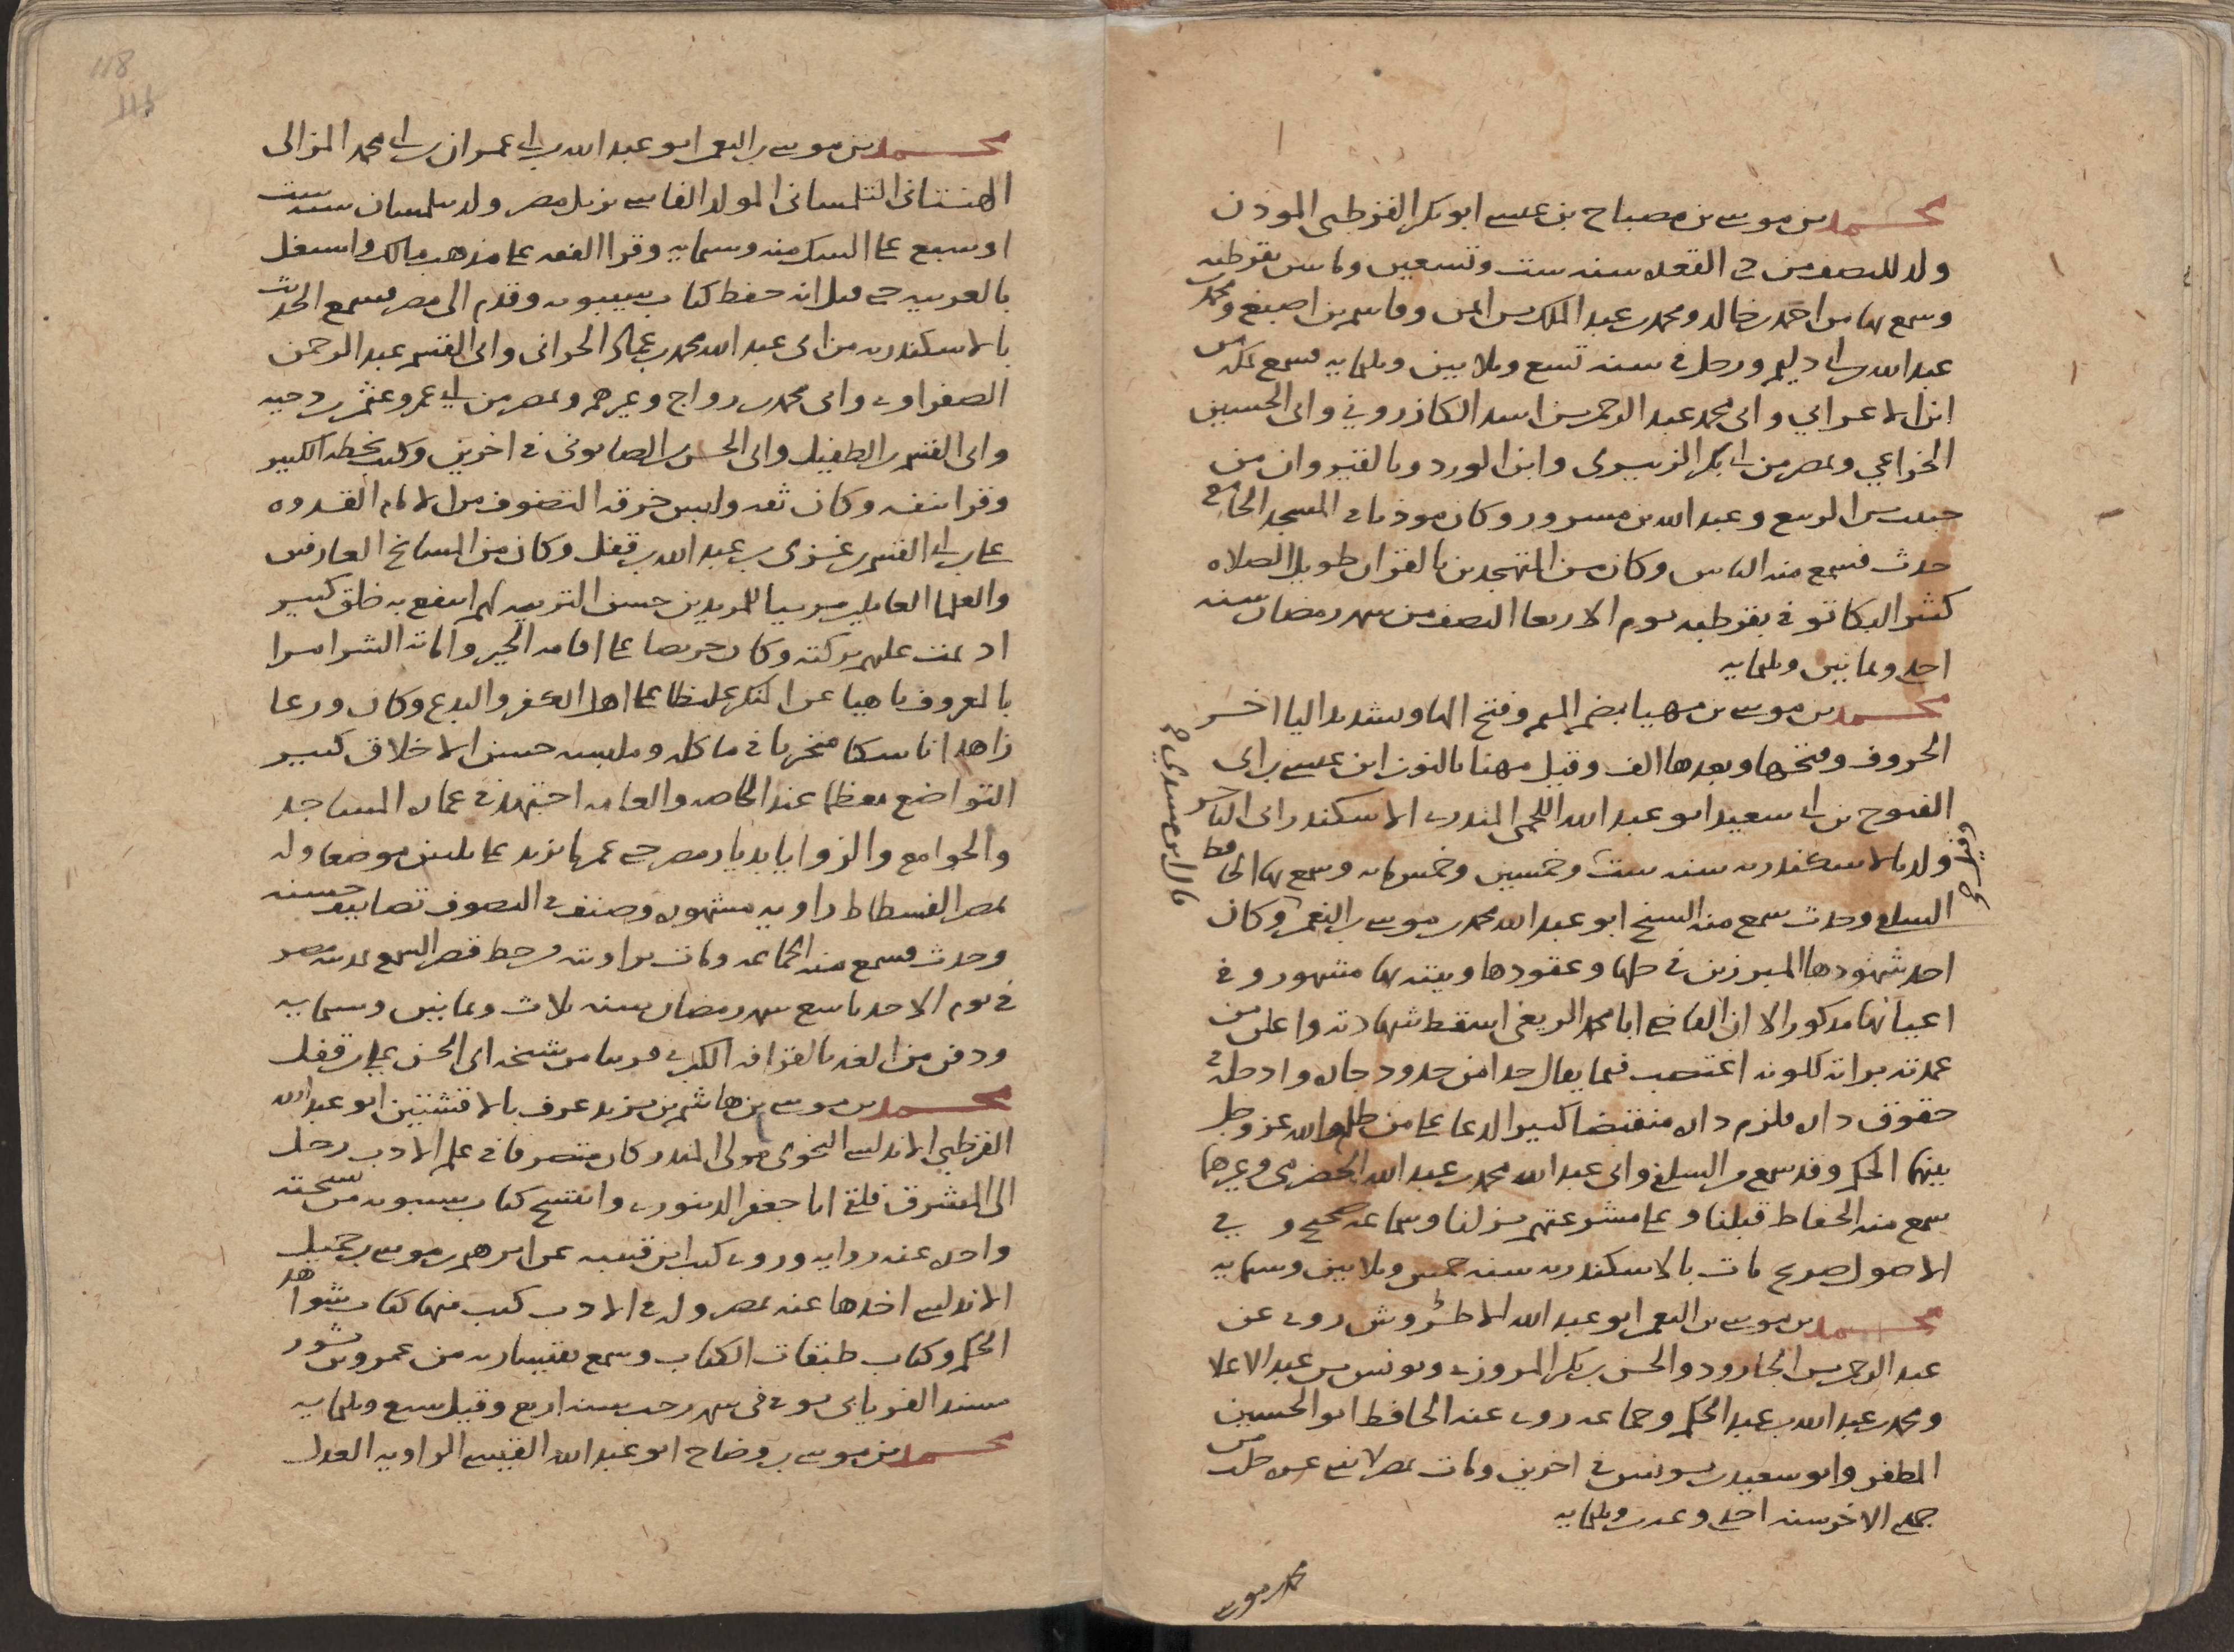 محمد بن موسى بن مصباح بن عيسى ابو بكر القرطبي الموذن
ولد للنصف من ذى القعده سنه ست وتسعين وماتين بقرطبه
وسمع بها من احمد بن خالد ومحمد بن عبد الملك بن ايمن وقاسم بن اصبغ ومحمد بن
عبد الله بن ابي دليم ورحل في سنه تسع وثلاثين وثلثمايه فسمع بمكه من
ابن الاعرابي وابى محمد عبد الرحمن بن اسد الكازروني وابى الحسين
الخزاعي وبمصر من ابي بكر الزبيري وابن الورد وبالقيروان من
حبيب بن الربيع وعبد الله بن مسرور وكان موذنا في المسجد الجامع
حدث فسمع منه الناس وكان من المتهجدين بالقران طويل الصلاه
كثير البكا توفي بقرطبه يوم الاربعا النصف من شهر رمضان سنه
احدى وثمانين وثلثمايه
محمد بن موسى بن مهيا بضم الميم وفتح الها وتشديد اليا اخر
الحروف وفتحها وبعدها الف وقيل مهنا بالنون ابن عيسى بن ابى
الفتوح بن ابي سعيد ابو عبد الله اللخمي المندري الاسكندراني التاجر
ولد بالاسكندريه سنه ست وخمسين وخمس مايه وسمع بها الحافظ
السلفي وحدث سمع منه الشيخ ابو عبد الله محمد بن موسى بن النعمن وكان
قال ابن مسدي
احد شهودها المبرزين في حلها وعقودها وبيته بها مشهور وفي
اعيانها مذكور الا ان القاضي ابا محمد الريغي اسقط شهادته واعلن من
عمدته براته لكونه اغتصب فيما يقال حدا من حدود جاره وادخله في
حقوق داره فلزم داره منقبضا كثير الدعا على من ظلمه والله عز وجل
بينهما الحكم وقد سمع من السلفي وابى عبد الله محمد بن عبد الله الحضرمي وغيرهما
سمع منه الحفاظ قبلنا وعلى مشرعتهم نزلنا وسماعه صحيح وفي
الاصول صريح مات بالاسكندريه سنه خمس وثلاثين وستمايه
محمد بن موسى بن النعمن ابو عبد الله الاطروش روى عن
عبد الرحمن بن الجارود والحسن بن بكر المروزي ويونس بن عبد الاعلا
ومحمد بن عبد الله بن عبد الحكم وجماعه روى عنه الحافظ ابو الحسين بن
المظفر وابو سعيد بن يونس في اخرين ومات بمصر لاثنى عشره خلت من
جمدى الاخر سنه احدى وعشرين وثلثمايه
محمد بن موسى
118
محمد بن موسى بن النعمن ابو عبد الله بن ابي عمران بن ابي محمد المزالى
الهنتاتى التلمسانى المولد الفاسي نزيل مصر ولد بتلمسان سنه ست
او سبع على الشك منه وستمايه وقرا الفقه على مذهب مالك واشتغل
بالعربيه حتى قيل انه حفظ كتاب سيبويه وقدم الى مصر فسمع الحديث
بالاسكندريه من ابى عبد الله محمد بن عماد الحرانى وابى القسم عبد الرحمن
الصفراوي وابى محمد بن رواج وغيرهم وبمصر من ابي عمرو عثمن بن دحيه
وابى القسم بن الطفيل وابى الحسن بن الصابونى في اخرين وكتب بخطه الكثير
وقرا بنفسه وكان ثقه ولبس خرقه التصوف من الامام القدوه
على بن ابي القسم بن غزى بن عبد الله بن قفل وكان من المشايخ العارفين
والعلما العاملين مربيا للمريدين حسن التربيه لهم انتفع به خلق كثير
اذ عمت عليهم بركته وكان حريصا على اقامه الخير واماته الشر امرا
بالمعروف ناهيا عن المنكر غليظا على اهل الكفر والبدع وكان ورعا
زاهدا ناسكا متحريا في ماكله وملبسه حسن الاخلاق كثير
التواضع معظما عند الخاصه والعامه اجتهد في عماره المساجد
والجوامع والزوايا بديار مصر حتى عمر ما يزيد على ثلثين موضعا وله
بمصر الفسطاط زاويه مشهوره وصنف في التصوف تصانيف حسنه
وحدث فسمع منه الجماعه ومات بزاويته من خط قصر الشمع بمدينه مصر
في يوم الاحد تاسع شهر رمضان سنه ثلاث وثمانين وستمايه
ودفن من الغد بالقرافه الكبرى قريبا من شيخه ابى الحسن علي بن قفل
محمد بن موسى بن هاشم بن يزيد عرف بالاقشتين ابو عبد الله
القرطبي الاندلسي النحوي مولى المنذر كان متصرفا في علم الادب رحل
الى المشرق فلقي ابا جعفر الدينوري وانتسخ كتاب سيبويه من نسخته
واخذه عنه روايه وروى كتب ابن قتيبه عن ابرهيم بن موسى بن جميل
الاندلسي اخذها عنه بمصر وله في الادب كتب منها كتاب شواهد
الحكم وكتاب طبقات الكتاب وسمع بقيساريه من عمرو بن ثور
مسند الفريابى توفى في شهر رجب سنه اربع وقيل سبع وثلثمايه
محمد بن موسى بن وضاح ابو عبد الله القيسي الراويه العدل